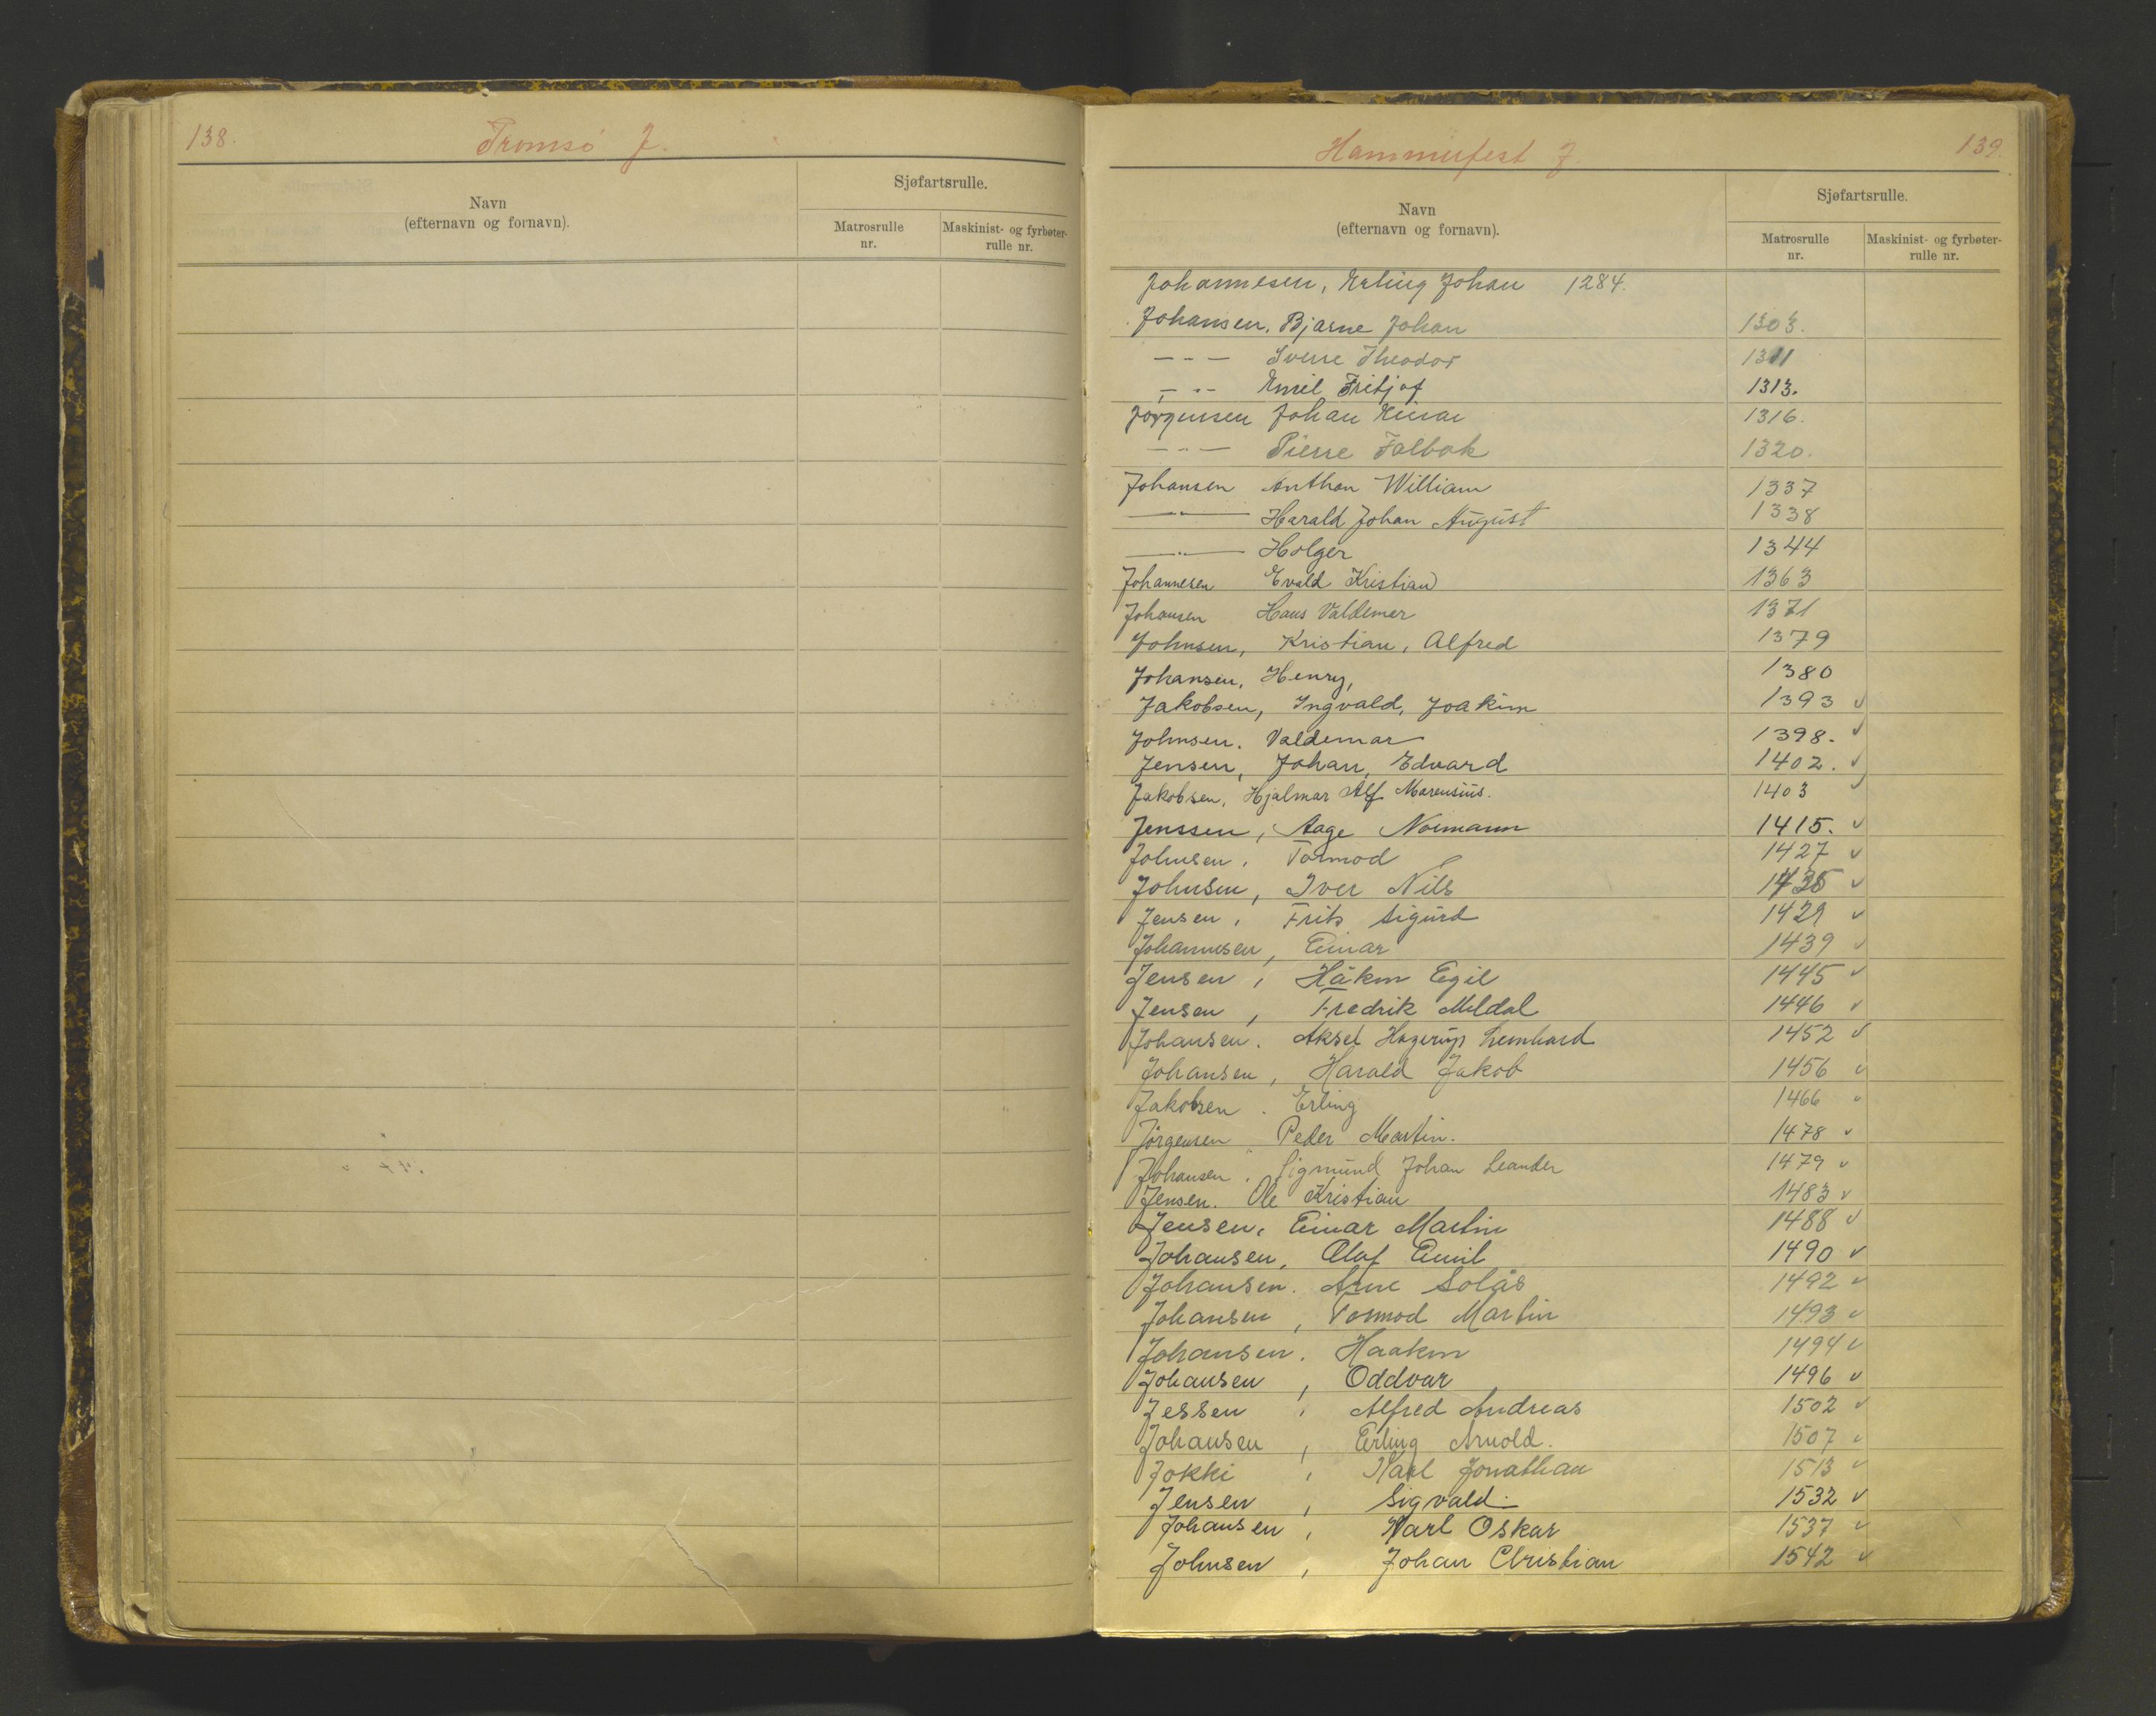 138.
Tromsø J.
Navn
(efternavn og fornavn).
Sjøfartsrulle.
Matrosrulle
nr.
Maskinist- og fyrbøter-
rulle nr.
Hammerfest J.
139.
Navn
(efternavn og fornavn).
Sjøfartsrulle.
Matrosrulle
nr.
Maskinist- og fyrbøter-
rulle nr.
Johannesen, Erling Johan 1284.
Johansen. Bjarne Johan 1303.
--- Sverre Theodor 1311
--- Emil Fritjof 1313.
Jørgensen Johan Einar 1316.
--- Pierre Falbak 1320.
Johansen Anthon William 1337
—"— Harald Johan August 1338
—"— Holger 1344
Johannesen Evald Kristian 1363
Johansen Hans Valdemar 1371
Johnsen, Kristian, Alfred 1379
Johansen, Henry, 1380
Jakobsen, Ingvald, Joakim 1393 ✓
Johnsen. Valdemar 1398. ✓
Jensen, Johan, Edvard 1402. ✓
Jakobsen, Hjalmar Alf Marensius. 1403 ✓
Jenssen, Aage Normann 1415. ✓
Johnsen, Tormod 1427 ✓
Johnsen, Iver Nils ✓
Jensen, Frits Sigurd 1429 ✓
Johannesen, Einar 1439 ✓
Jensen, Håkon Egil 1445 ✓
Jensen, Fredrik Meldal 1446 ✓
Johansen. Aksel Hagerup Lernhard 1452 ✓
Johansen, Harald Jakob 1456 ✓
Jakobsen. Erling 1466 ✓
Jørgensen Peder Martin. 1478 ✓
Johansen. Sigmund Johan Leander 1479 ✓
Jensen. Ole Kristian 1483 ✓
Jensen, Einar Martin 1488 ✓
Johansen, Olaf Emil 1490 ✓
Johansen. Arne Solås 1492 ✓
Johansen, Tormod Martin 1493 ✓
Johansen. Haakon 1494 ✓
Johansen, Oddvar 1496 ✓
Jessen, Alfred Andreas 1502 ✓
Johansen, Erling Arnold. 1507 ✓
Jokki, Karl Jonathan 1513 ✓
Jensen, Sigvald. 1532 ✓
Johansen, Karl Oskar 1537 ✓
Johnsen, Johan Christian 1542 ✓